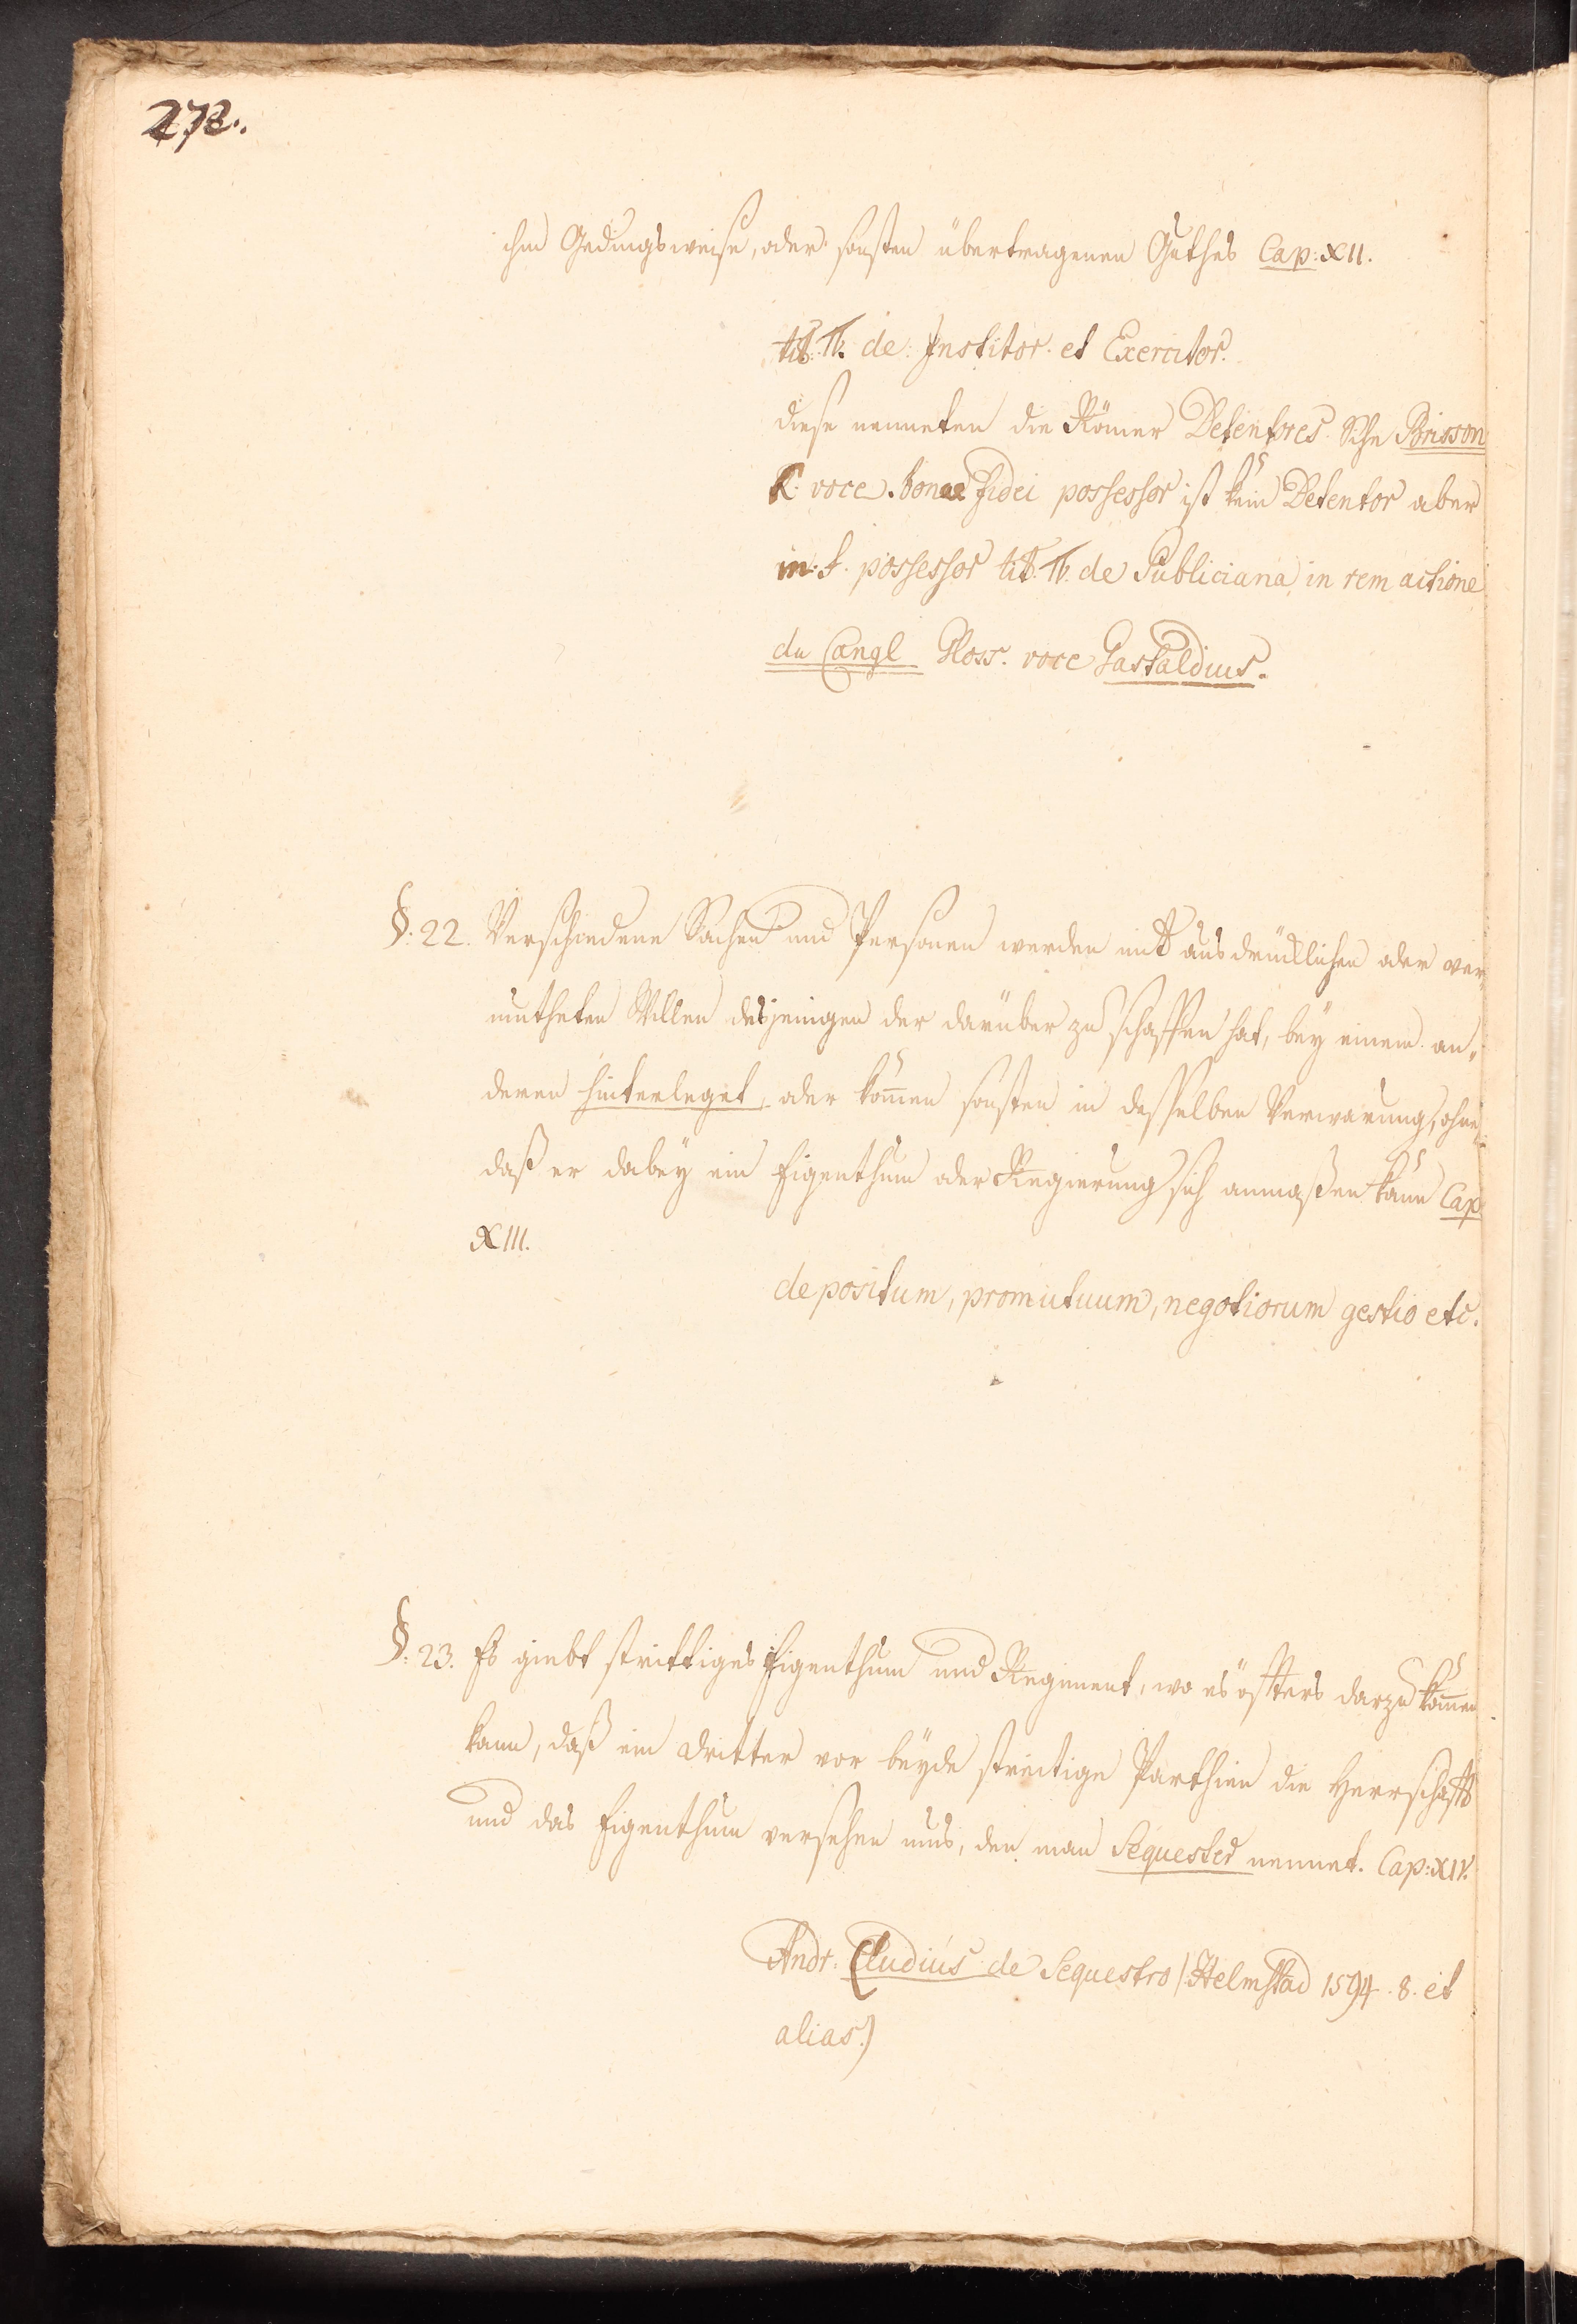 278.
ihm Gedingsweise, oder sonsten übertragenen Guthes Cap: XII.
tit. π. de: Institor. et Exercitor.
diese nenneten die Römer Detentores. Sihe Brisson
h. voce. bonae fidei possessor ist kein Detentor aber
m. f. possessor tit. π. de Publiciana in rem actione
du Cangl Gloss. voce Gastaldius.
§. 22. Verschiedene Sachen und Personen werden mit ausdrücklichen oder ver-
mutheten Willen desjenigen der darüber zu schaffen hat, bey einem an-
deren hinterleget, oder kom̄en sonsten in desselben Verwarung, ohne
daß er dabey ein Eigenthum oder Regierung sich anmaßen kann Cap
XIII.
depositum, promutuum, negotiorum gestio etc.
§. 23. Es giebt strittiges Eigenthum und Regiment, wo es öffters darzu kom̄en
kann, daß ein dritter vor beyde streitige Parthien die Herrschafft
und das Eigenthum versehen mus, den man Sequester nennet. Cap: XIV.
Andr. Cludius de Sequestro /Helmstad 1594. 8. et
alias.)